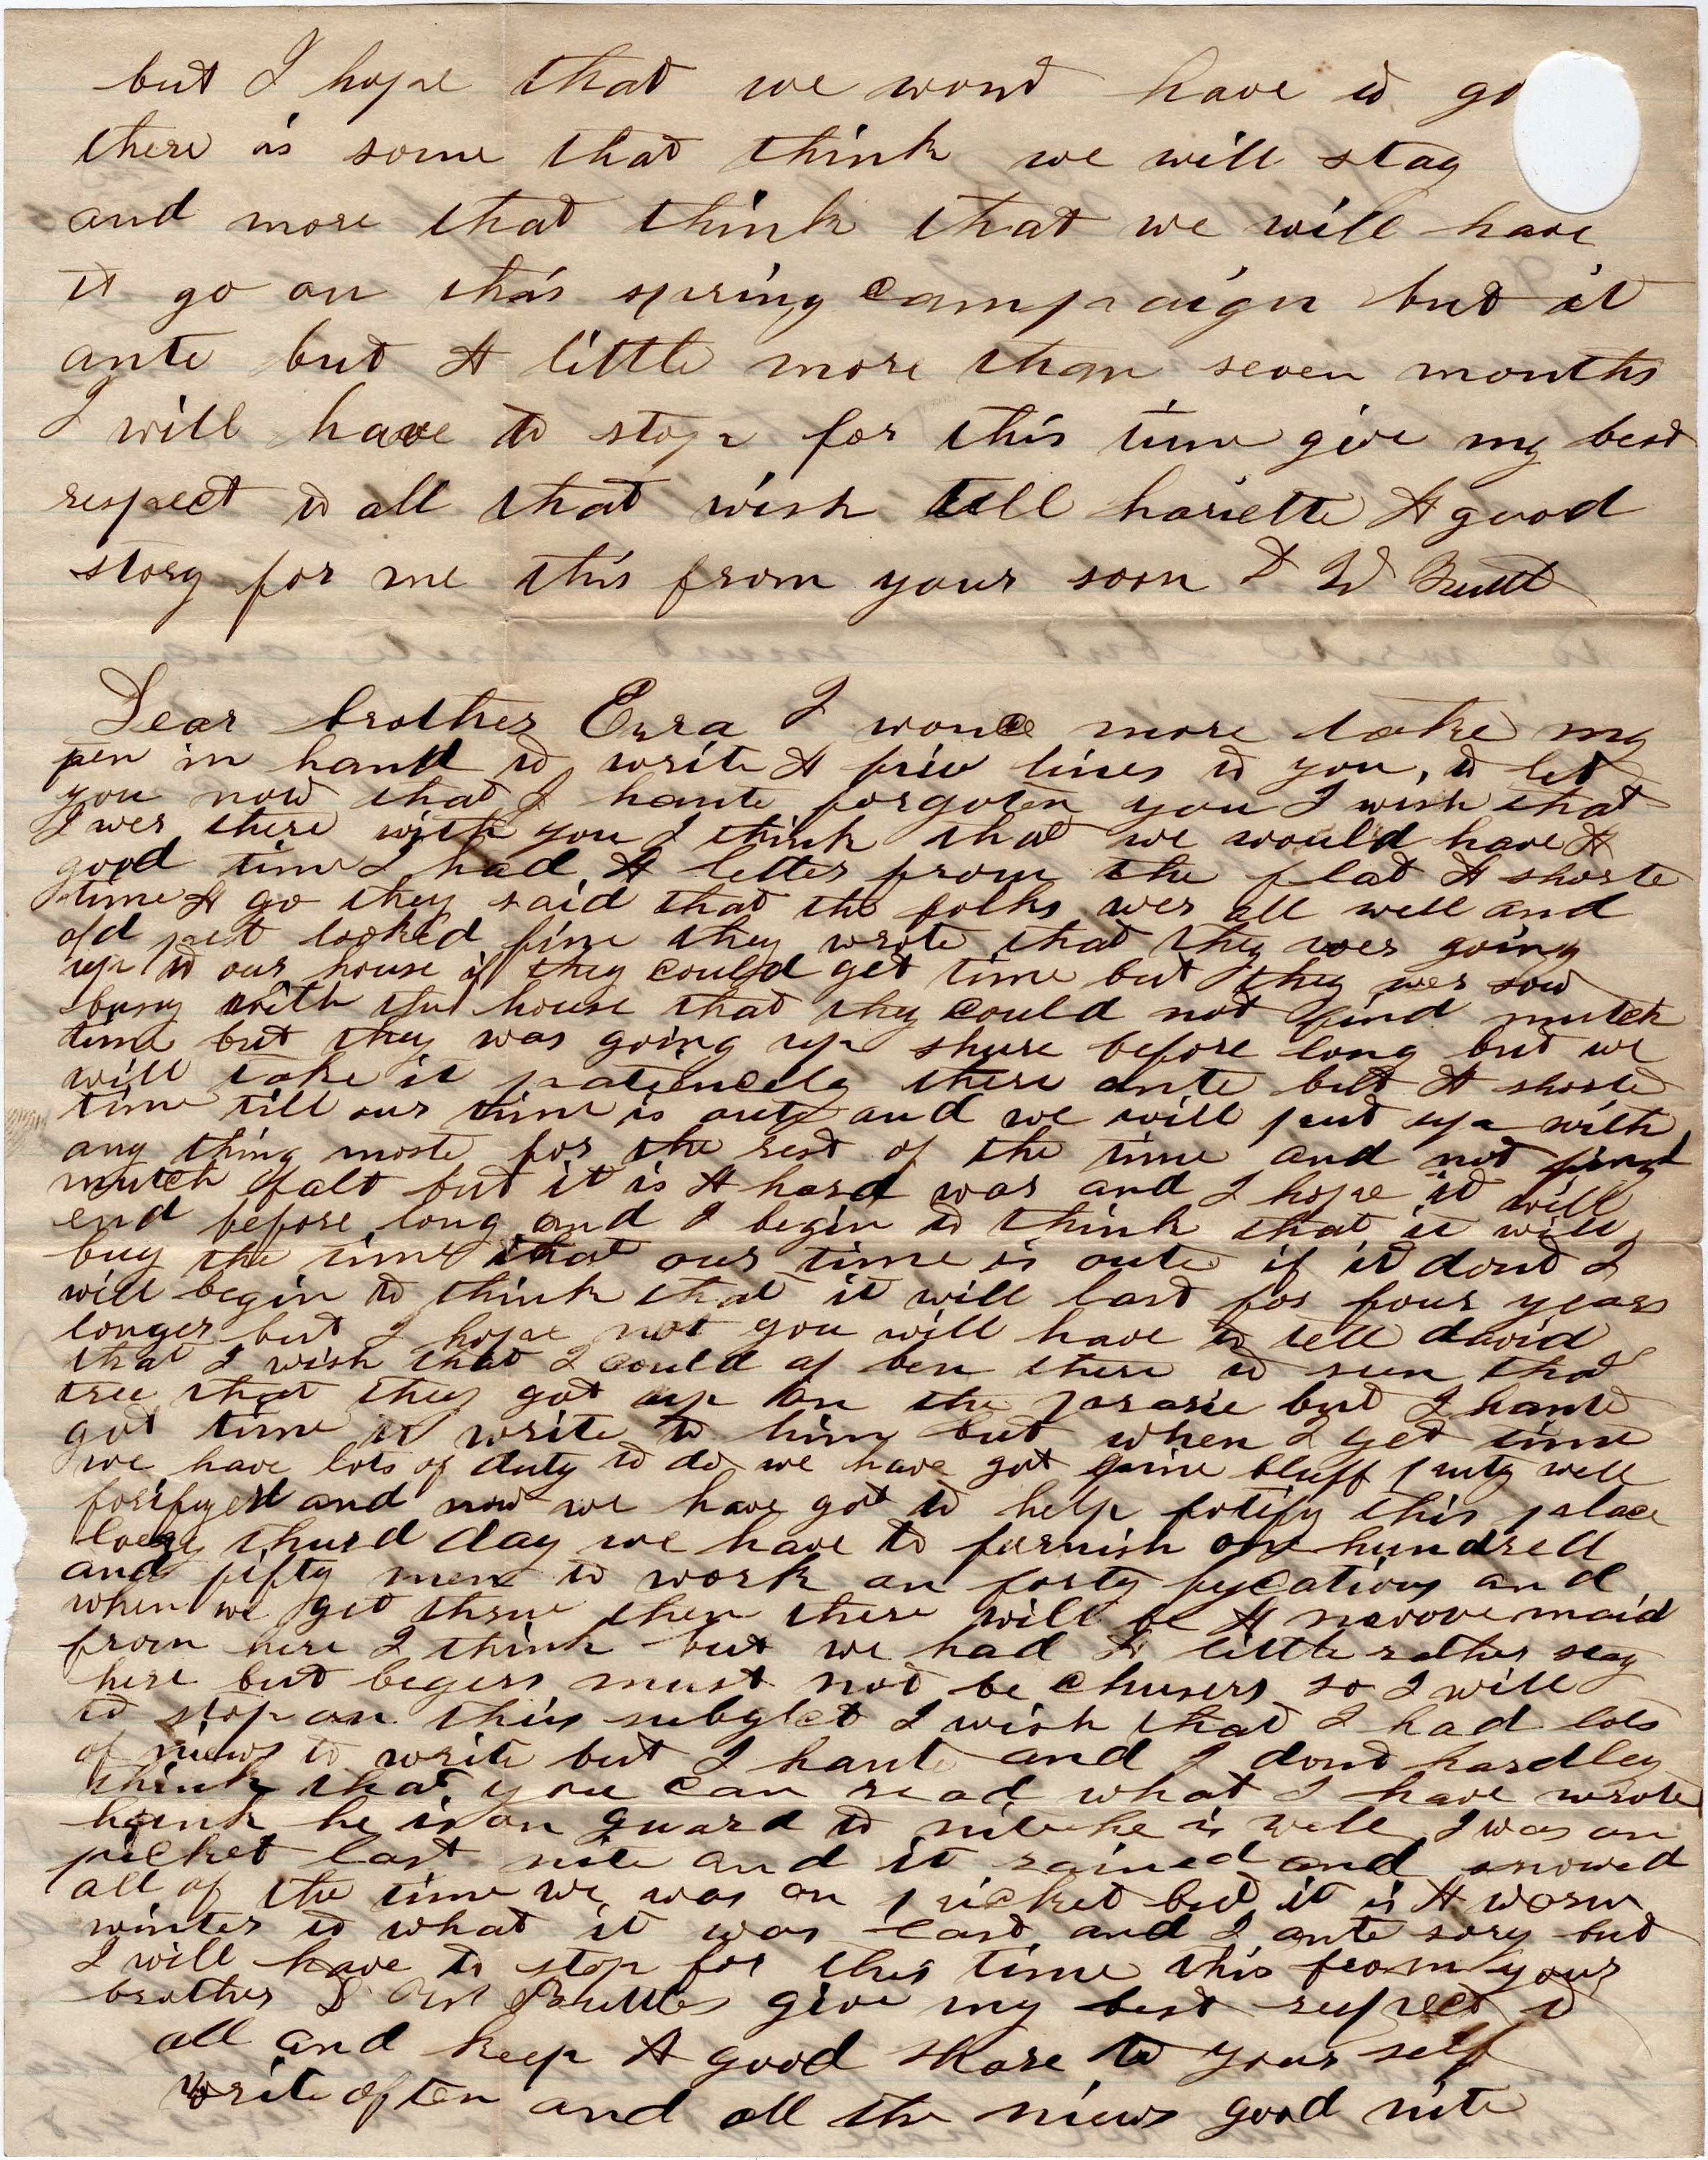 but I hope that we wont have to go
there is some that think we will stay
and more that think that we will have
to go on this spring campaign but it
ante but A little more than seven months
I will have to stop for this time give my best
respect to all that wish tell hariette A good
story for me this from your soon D W
Dear brother Ezra I wonce more take my
pen in hand to write A friw lines to you, to let
you now that I hante forgoten you I wish that
I wer there with you I think that we would have A
good time I had A letter from the flat A shorte
time A go they said that the folks wer all well and
old pet looked fine they wrote that they wer going
up to our house if they could get time but they wer sow
busy with the house that they could not find mutch
time but they was going up shure before long but we
will take it patiencely there ante but A shorte
time till our time is oute and we will put up with
any thing moste for the rest of the time and not find
mutch falt but it is A hard war and I hope it will
end before long and I begin to think that it will
buy the time that our time is oute if it dont I
will begin to think that it will last for four years
longer but I hope not you will have to tell david
that I wish that I could of ben there to seen that
tree that they got up on the prarie but I hante
got time to write to him but when I get time
we have lots of duty to do we have got pine bluff purty well
forifyed and now we have got to help fotify this place
every thurd day we have to furnish one hundred
and fifty men to work on forty fycations and
when we get threw then there will be A moovemaid
from here I think but we had A little rather stay
here but begers must not be chusers so I will
to stop on this subglet I wish that I had lots
of niews to write but I hante and I dont hardley
think that you can read what I have wrote
hank he is on guard to nite he is well I was on
picket last nite and it rained and snowed
all of the time we was on picket but it is A worm
winter to what it was last and I ante sory but
I will have to stop for this time this from your
brother D give my best respect to
all and keep A good share to your self
write often and all the niews good nite